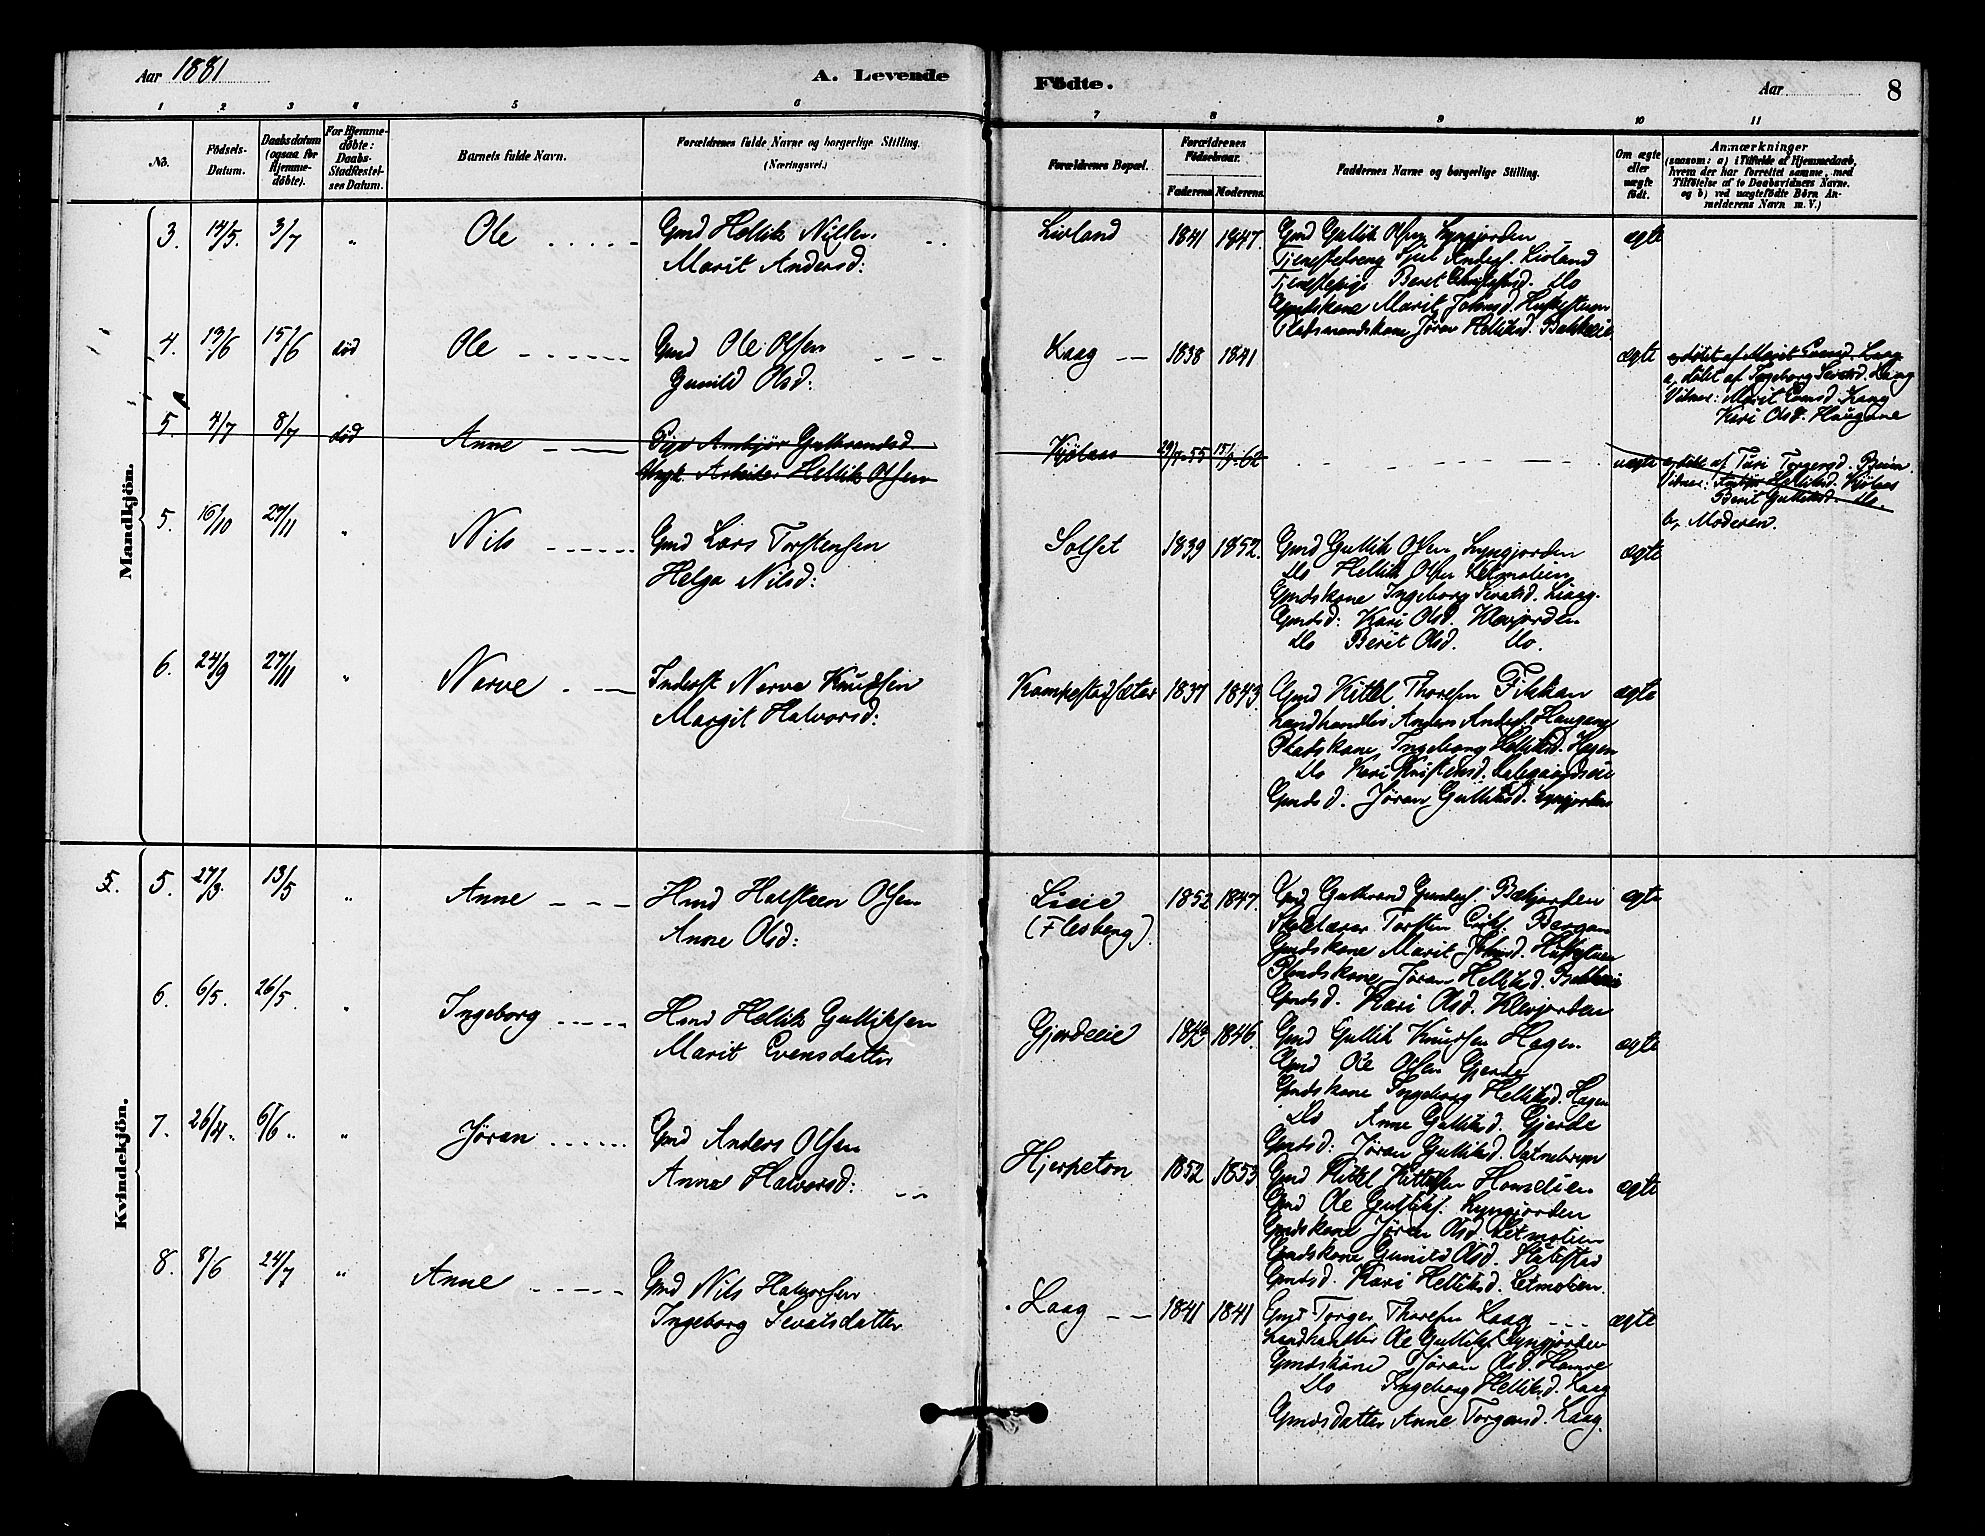 Aar 1881
A. Levende
Födte.
Aar
8
1 2 3 4 5 6
7 8 9 10 11
No.
Födsels-
Datum.
Daabsdatum
(ogsaa for
Hjemme-
döbte).
For Hjemme-
döbte:
Daabs-
Stadfæstel-
ses Datum.
Barnets fulde Navn.
Forældrenes fulde Navne og borgerlige Stilling.
(Næringsvei.)
Forældrenes Bopæl.
Forældrenes
Födselsaar.
Faderens Moderens.
Faddernes Navne og borgerlige Stilling.
Om ægte
eller
uægte
födt.
Anmærkninger
(saasom: a) i Tilfælde af Hjemmedaab,
hvem der har forrettet samme, med
Tilföielse af to Daabsvidners Navne.
og b) ved uægtefödte Börn An-
melderens Navn m. V.)
Mandkjön.
3. 14/5. 3/7 " Ole
Gmd Hellik Nilsen
Marit Andersd:
Livland 1841 1847.
Gmd Gullik Olsen Lyngjorden
Tjenestedreng Andes. Livland
Tjenestepige Beret Do
Gmdskone Marit Johnsd.
Pladsmandskone Jøran Helliksd. Bakkeeie
ægte
4. 13/6 15/6 død Ole
Gmd Ole Olsen
Gunild Olsd:
Laag 1838 1841
ægte
døbt af Marit Evensd. Laag
a, døbt af Ingeborg Sevatsd. Laag
Vidner: Marit Evensd. Laag
Kari Olsd. Haugane
5. 4/7 8/7 død Anne
Pige Ambjør Gulbrandsd
Ungk. Arbeider Hellik Olsen
Kjølaas 29/7-55 62
uægte
døbt af Turi Torgersd.
Vidner: Helliksd. Kjølaas
Berit Gulliksd. Do.
b, Moderen.
5. 16/10 27/11 " Nils
Gmd Lars Torstensen
Helga Nilsd:
Solset 1839 1852.
Gmd Gullik Olsen Lyngjorden
Do Hellik Olsen Letmolien
Gmdskone Ingeborg Sevatsd. Laag.
Gmdsd: Kari Olsd. Klevjorden
Do Berit Olsd. Do.
ægte
6. 24/9 27/11 " Nerve
Inderst Nerve Knudsen
Margit Halvorsd:
Kampestadsæter 1837 1843.
Gmd Kittel Thoresen Fikkan
Landhandler Anders Anders. Haugane
Pladskone Ingeborg Helliksd. Hagen
Do Kari Kristensd.
Gmdsd. Jøran Gulliksd. Lyngjorden
ægte
Kvindekjön.
5. 5. 27/3. 13/5 " Anne
Hmd Halsteen Olsen
Anne Olsd:
Lieie
(Flesberg).
1852 1847.
Gmd Gulbrand Gundes. Bækjorden
Skolelærer Torsten Bergan
Gmdskone Marit Johnsd.
Pladskone Jøran Helliksd. Bakkeeie
Gmdsd. Kari Olsd. Klevjorden
ægte
6. 6/5. 26/5. " Ingeborg
Hmd Hellik Gulliksen
Marit Evensdatter
Gjerdeeie 1842 1846.
Gmd Gullik Knudsen Hagen
Gmd Ole Olsen Gjerde
Gmdskone Ingeborg Helliksd. Hagen
Do Anne Gulliksd. Gjerde
Gmdsd. Jøran Gulliksd. Vatnebryn
ægte
7. 26/4. 6/6. " Jøran
Gmd Anders Olsen
Anne Halvorsd:
Hjerpeton 1852 1853
Gmd Kittel Kittelsen
Gmd Ole Gulliks. Lyngjorden
Gmdskone Jøran Olsd. Letmolien
Gmdskone Gunild Olsd.
Gmdsd. Kari Helliksd. Letmolien.
ægte
8. 8/6 24/7 " Anne
Gmd Nils Halvorsen
Ingeborg Sevatsdatter
Laag 1841 1841
Gmd Torger Thoresen Laag
Landhandler Ole Gulliks. Lyngjorden
Gmdskone Jøran Olsd. Hamre
Do Ingeborg Helliksd. Laag
Gmdsdatter Anne Torgersd. Laag.
ægte